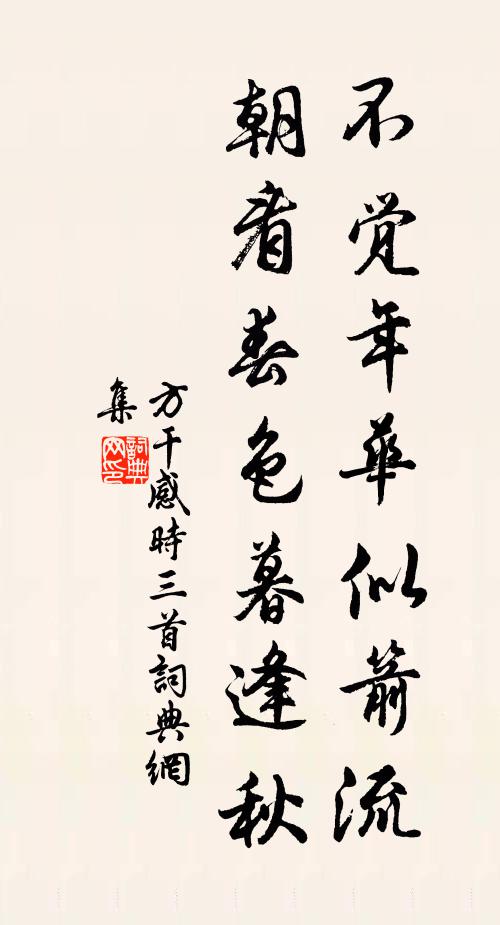 不覚年華似箭流
朝看春色暮逢秋
方干感時三首詞典網
集
詞典
网印